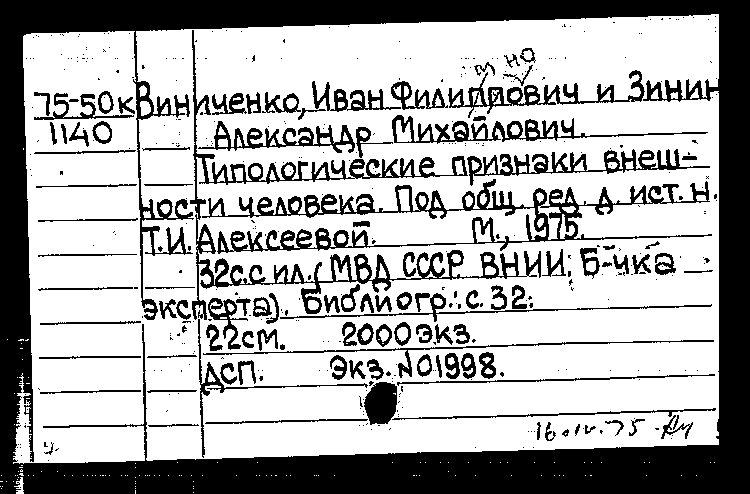 но
75-50к Виниченко, Иван Филиппович и Зинин
1140 Александр Михайлович.
Типологические признаки внеш-
ности человека. Под общ. ред. д. ист. н.
Т.И. Алексеевой. М., 1975.
32с.с ил. (МВД СССР ВНИИ. Б-чка
эксперта). Библиогр.: с. 32.
22см. 2000 экз.
ДСП. Экз. №01998.
16.IV.75